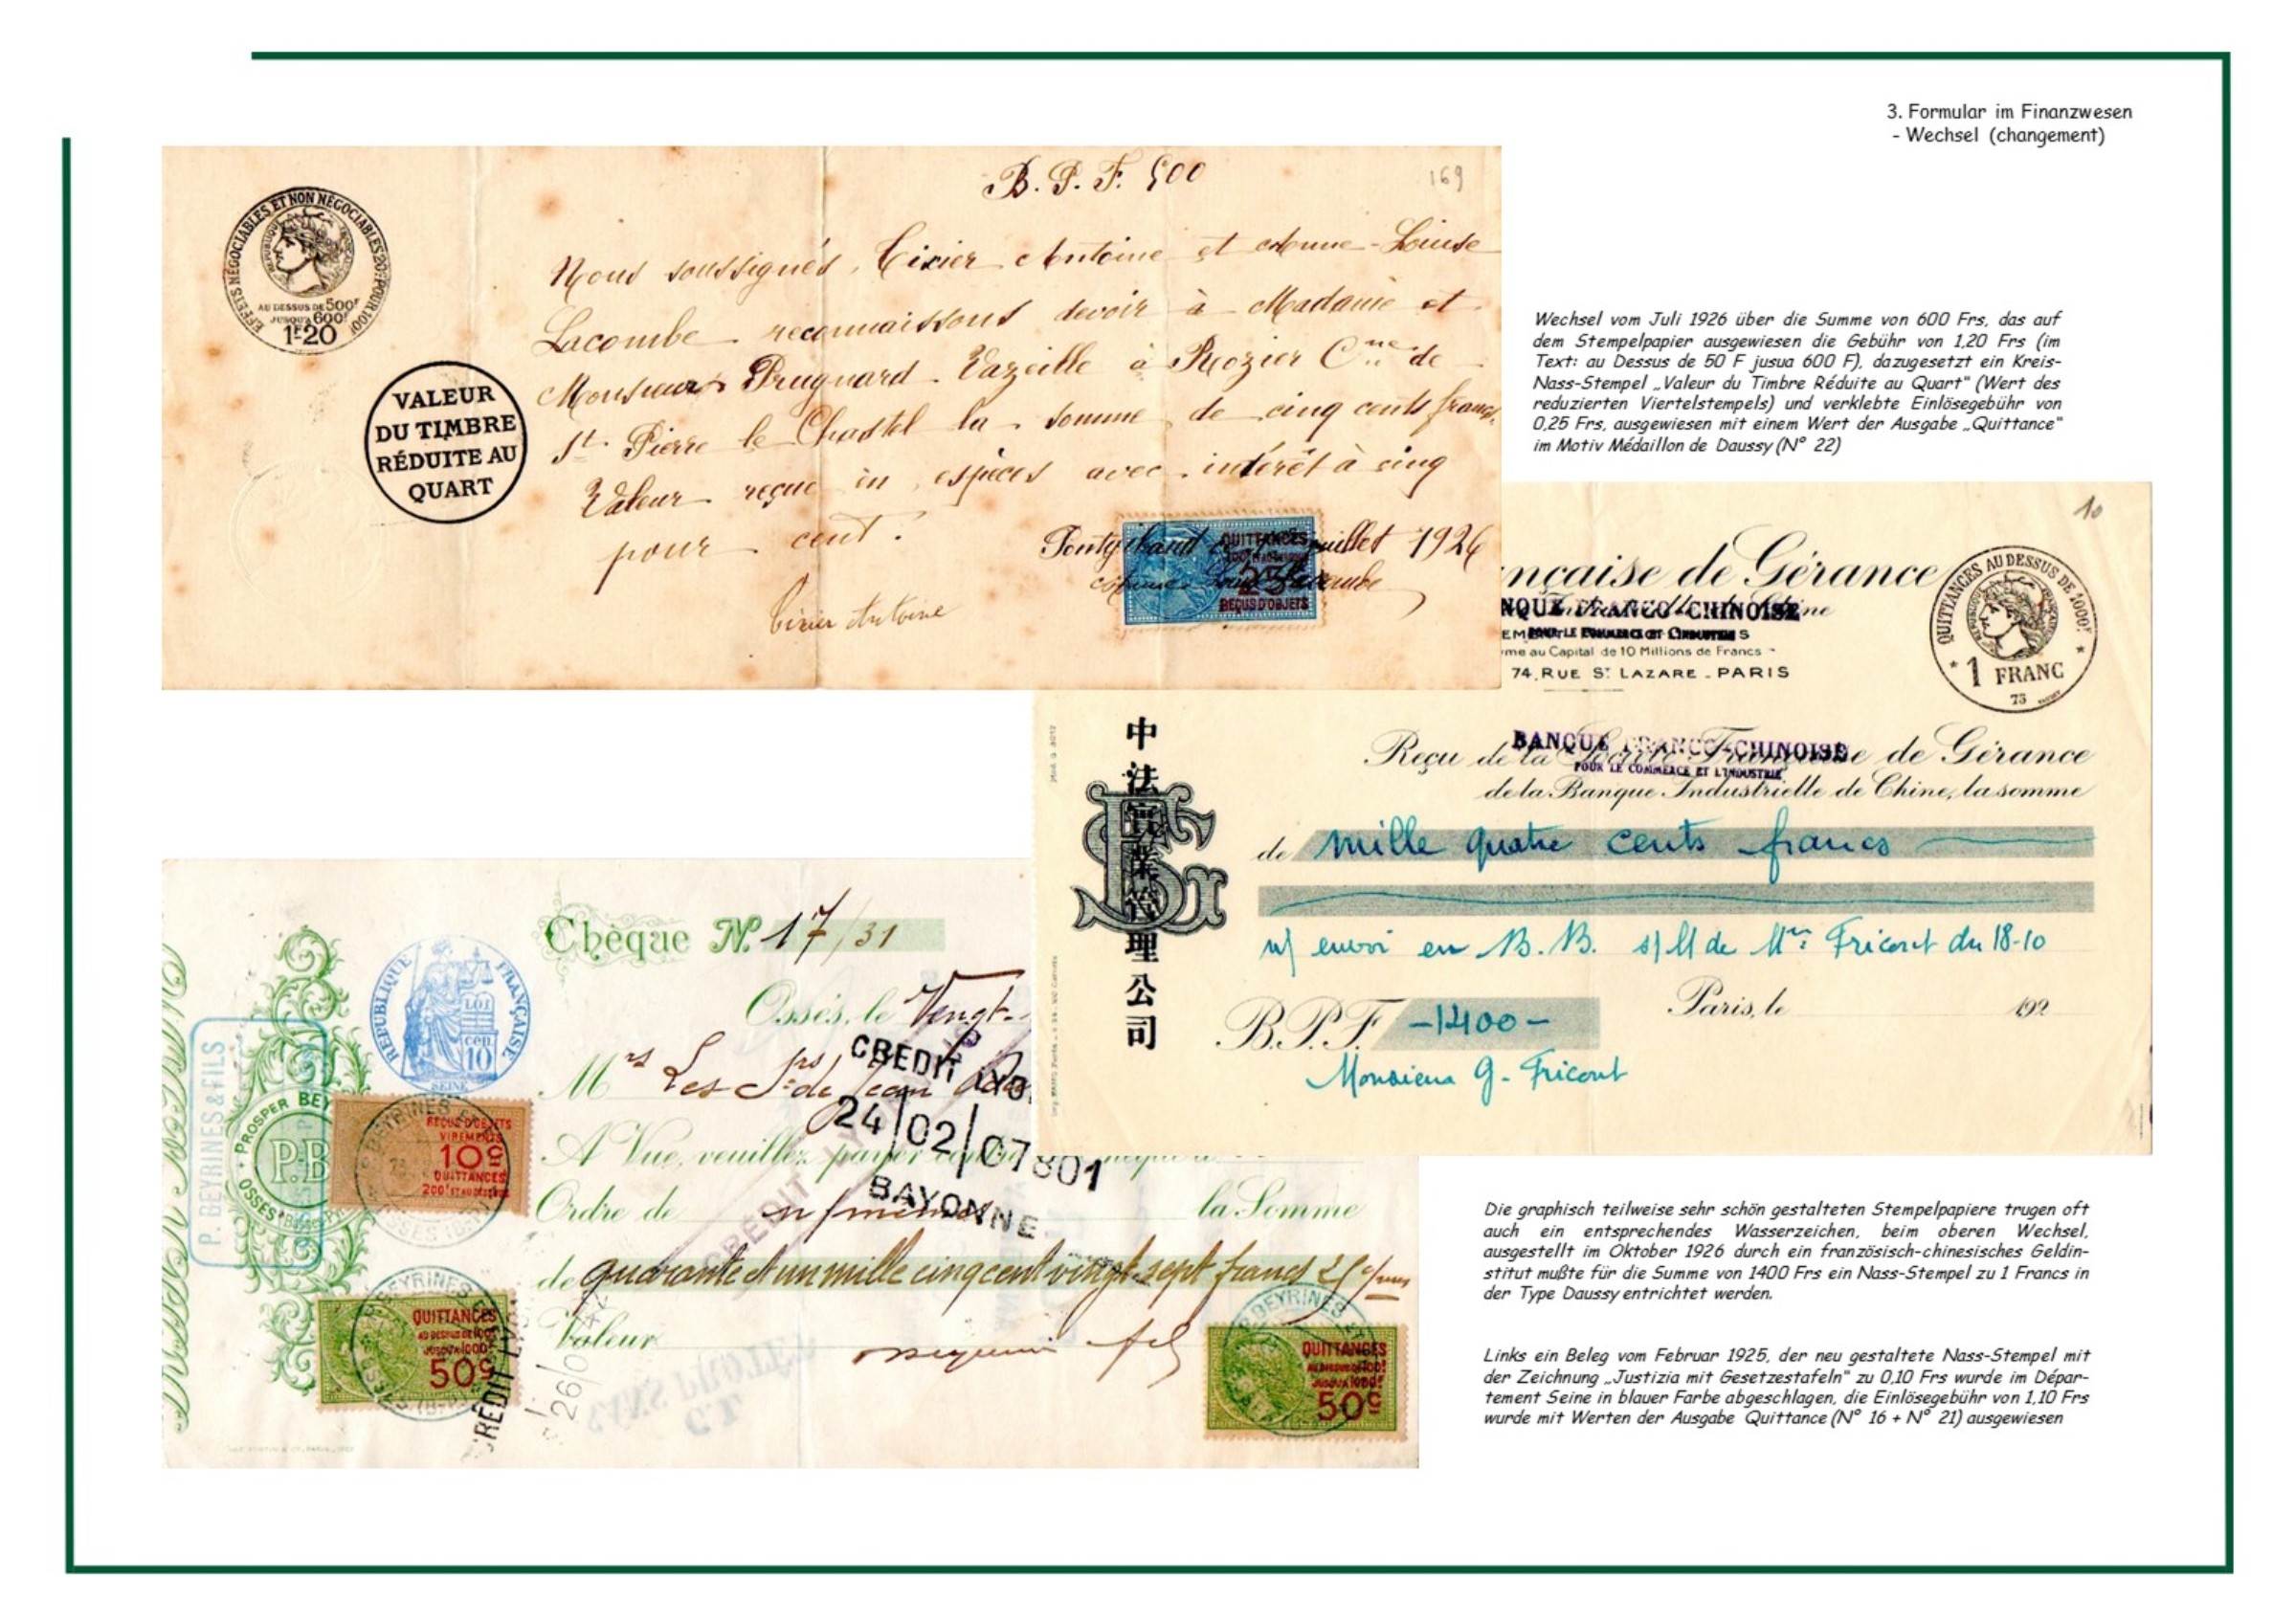 3. Formular im Finanzwesen
- Wechsel (changement)
B. P. F. 500
169
EFFETS NÉGOCIABLES ET NON NÉGOCIABLES 20c POUR 100f
RÉPUBLIQUE FRANÇAISE
AU DESSUS DE 500F
JUSQU'À 600F
1F20
VALEUR
DU TIMBRE
RÉDUITE AU
QUART
Nous soussignés, Tixier Antoine et Anne-Louise
Lacombe reconnaissons devoir à Madame et
Monsieur Prugnard-Vazeille à Rozier Cne de
St Pierre le Chastel la somme de cinq cents francs.
Valeur reçue en espèces avec intérêt à cinq
pour cent.
juillet 1926
QUITTANCES
25c
REÇUS D'OBJETS
Tixier Antoine
Wechsel vom Juli 1926 über die Summe von 600 Frs, das auf
dem Stempelpapier ausgewiesen die Gebühr von 1,20 Frs (im
Text: au Dessus de 50 F jusua 600 F), dazugesetzt ein Kreis-
Nass-Stempel „Valeur du Timbre Réduite au Quart" (Wert des
reduzierten Viertelstempels) und verklebte Einlösegebühr von
0,25 Frs, ausgewiesen mit einem Wert der Ausgabe „Quittance"
im Motiv Médaillon de Daussy (N° 22)
10
nçaise de Gérance
NQUE FRANCO-CHINOISE
POUR LE COMMERCE ET L'INDUSTRIE
me au Capital de 10 Millions de Francs -
74, RUE ST LAZARE - PARIS
QUITTANCES AU DESSUS DE 1000F
* 1 FRANC *
73
中法實業管理公司
BANQUE FRANCO-CHINOISE
POUR LE COMMERCE ET L'INDUSTRIE
Reçu de la Société Française de Gérance
de la Banque Industrielle de Chine, la somme
de mille quatre cents francs
n/ envoi en B.B. s/ll de Mr Fricout du 18-10
B.P.F. -1400-
Paris, le 192
Monsieur G. Fricout
Chèque No. 17/31
Ossès, le Vengt-
RÉPUBLIQUE FRANÇAISE
LOI
CEN.
10
SEINE
P. BEYRINES & FILS
PROSPER BEY
P.B
OSSÈS
Mrs Les
CREDIT LYO
24/02/07801
BAYONNE
CREDIT LYON
A Vue, veuillez payer
Ordre de n/ mêmes la Somme
de quarante et un mille cinq cent vingt-sept francs
Valeur
REÇUS D'OBJETS
VIREMENTS
10c
QUITTANCES
QUITTANCES
AU DESSUS DE 100F
JUSQU'À 1000F
50c
CRÉDIT LYO
26/0
SANS PROTÊT
C. L.
QUITTANCES
AU DESSUS DE 100F
JUSQU'À 1000F
50c
Die graphisch teilweise sehr schön gestalteten Stempelpapiere trugen oft
auch ein entsprechendes Wasserzeichen, beim oberen Wechsel,
ausgestellt im Oktober 1926 durch ein französisch-chinesisches Geldin-
stitut mußte für die Summe von 1400 Frs ein Nass-Stempel zu 1 Francs in
der Type Daussy entrichtet werden.
Links ein Beleg vom Februar 1925, der neu gestaltete Nass-Stempel mit
der Zeichnung „Justizia mit Gesetzestafeln" zu 0,10 Frs wurde im Dépar-
tement Seine in blauer Farbe abgeschlagen, die Einlösegebühr von 1,10 Frs
wurde mit Werten der Ausgabe Quittance (N° 16 + N° 21) ausgewiesen